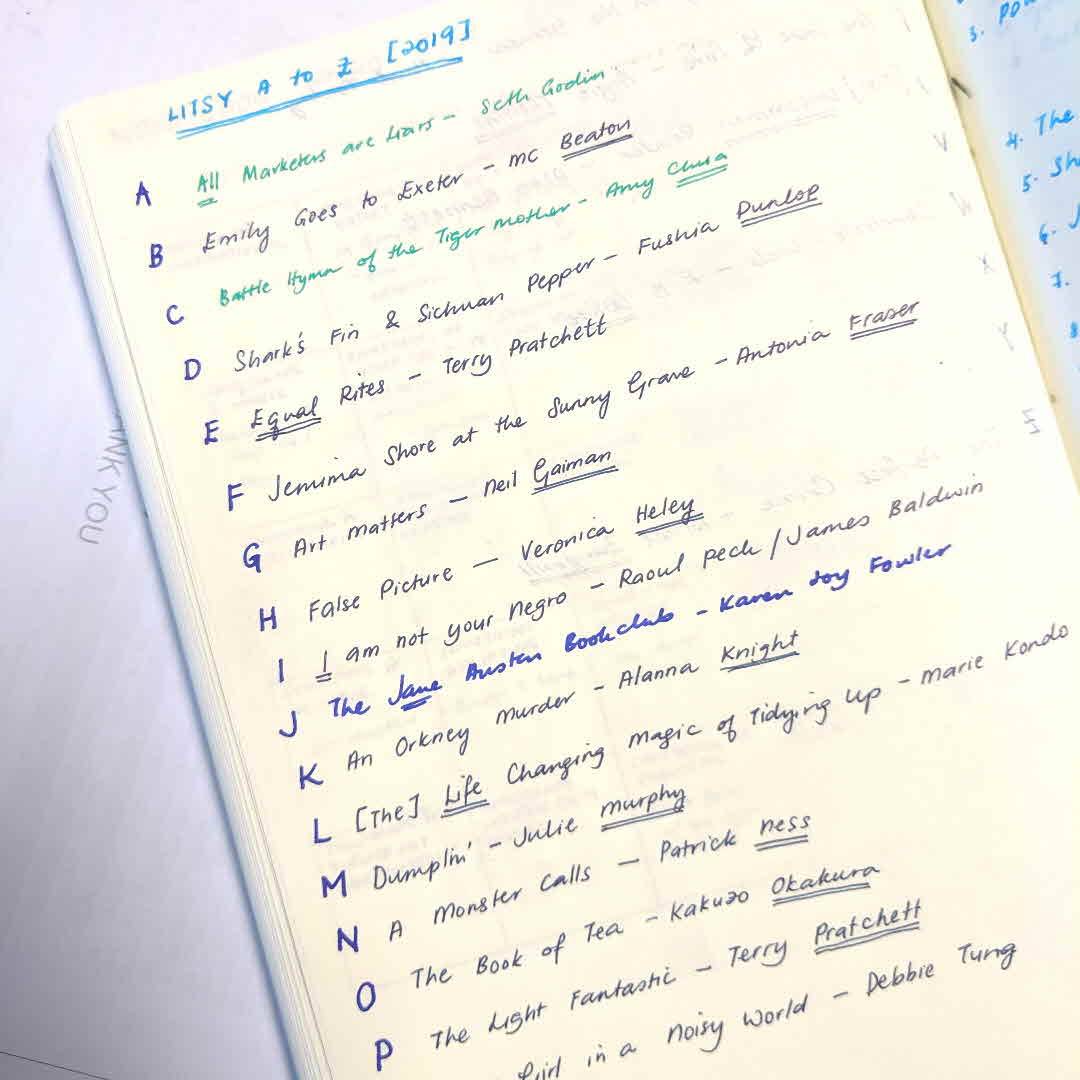 LITSY A to Z [2019]
A All Marketers are Liars - Seth Godin
B Emily Goes to Exeter - MC Beaton
C Battle Hymn of the Tiger Mother - Amy Chua
D Shark's Fin & Sichuan Pepper - Fushia Dunlop
E Equal Rites - Terry Pratchett
F Jemima Shore at the Sunny Grave - Antonia Fraser
G Art Matters - Neil Gaiman
H False Picture - Veronica Heley
I I am not your Negro - Raoul Peck / James Baldwin
J The Jane Austen Bookclub - Karen Joy Fowler
K An Orkney Murder - Alanna Knight
L [The] Life Changing Magic of Tidying Up - Marie Kondo
M Dumplin' - Julie Murphy
N A Monster Calls - Patrick Ness
O The Book of Tea - Kakuzo Okakura
P The Light Fantastic - Terry Pratchett
Girl in a Noisy World - Debbie Tung
3.
4. The
5. Sh
6.
7.
8.
INK YOU